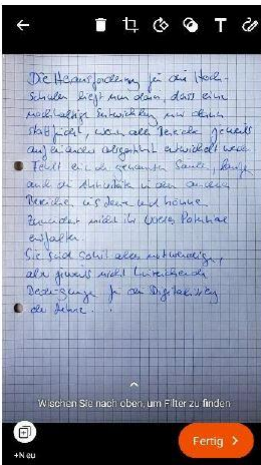 Die Herausforderung für die Hoch-
schulen liegt nun darin, dass eine
nachhaltige Entwicklung nur dann
stattfindet, wenn alle Bereiche jeweils
aufeinander abgestimmt entwickelt werden.
Fehlt eine der genannten Säulen, hängen
auch die Aktivitäten in den anderen
Bereichen und können
zumindest nicht ihr volles Potential
entfalten.
Sie sind somit aber notwendige,
aber jeweils nicht hinreichende
Bedingungen für die Digitalisierung
der Lehre.
Wischen Sie nach oben, um Filter zu finden
+Neu
Fertig